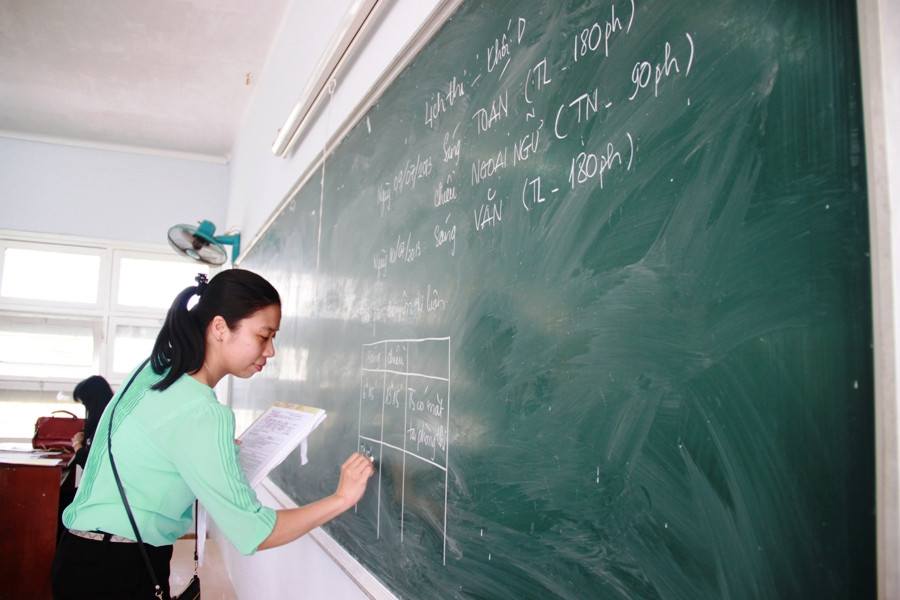 Lịch thi: Khối D
Ngày 09/07/2013 Sáng TOÁN (TL - 180ph)
chiều NGOẠI NGỮ (TN - 90ph)
Ngày 10/07/2013 Sáng VĂN (TL - 180ph)
Sáng chiều
6h15' 13h15' TS có mặt
tại phòng thi